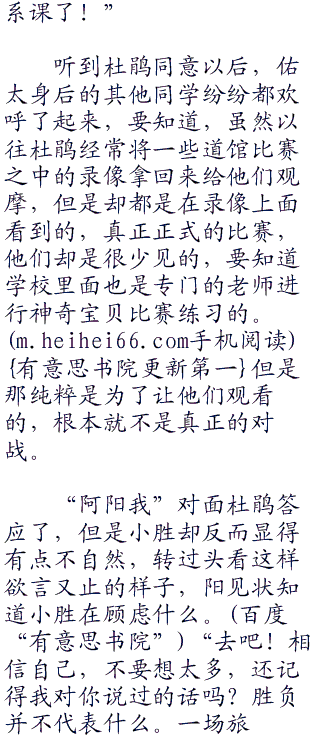 系课了！”
听到杜鹃同意以后，佑
太身后的其他同学纷纷都欢
呼了起来，要知道，虽然以
往杜鹃经常将一些道馆比赛
之中的录像拿回来给他们观
摩，但是却都是在录像上面
看到的，真正正式的比赛，
他们却是很少见的，要知道
学校里面也是专门的老师进
行神奇宝贝比赛练习的。
(m.heihei66.com手机阅读)
{有意思书院更新第一}但是
那纯粹是为了让他们观看
的，根本就不是真正的对
战。
“阿阳我”对面杜鹃答
应了，但是小胜却反而显得
有点不自然，转过头看这样
欲言又止的样子，阳见状知
道小胜在顾虑什么。(百度
“有意思书院”)“去吧！相
信自己，不要想太多，还记
得我对你说过的话吗？胜负
并不代表什么。一场旅